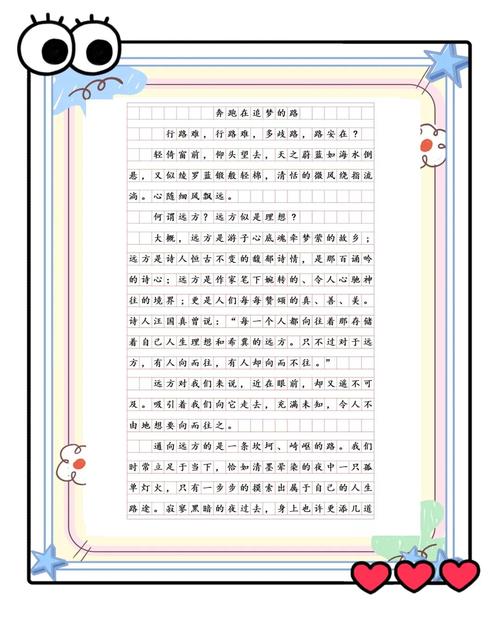 奔跑在追梦的路
行路难，行路难，多歧路，路安在？
轻倚窗前，仰头望去，天之蔚蓝如海水倒
悬，又似绫罗蓝缎般轻棉，清恬的微风绕指流
淌。心随细风飘远。
何谓远方？远方似是理想？
大概，远方是游子心底魂牵梦萦的故乡；
远方是诗人恒古不变的馥郁诗情，是那百诵吟
的诗心；远方是作家笔下婉转的、令人心驰神
往的境界；更是人们每每赞颂的真、善、美。
诗人汪国真曾说：“每一个人都向往着那存储
着自己人生理想和希冀的远方。只不过对于远
方，有人向而往，有人却向而不往。”
远方对我们来说，近在眼前，却又遥不可
及。吸引着我们向它走去，充满未知，令人不
由地想要向而往之。
通向远方的是一条坎坷、崎岖的路。我们
时常立足于当下，恰如清墨晕染的夜中一只孤
单灯火，只有一步步的摸索出属于自己的人生
路途。寂寥黑暗的夜过去，身上也许更添几道